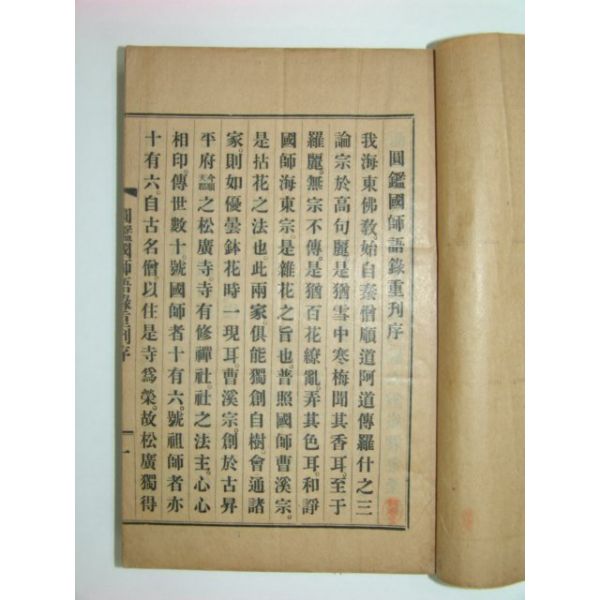 圓鑑國師語錄重刊序
我海東佛敎。始自秦僧順道阿道傳羅什之三
論宗於高句麗。是猶雪中寒梅聞其香耳。至于
羅麗。無宗不傳。是猶百花繚亂。弄其色耳。和諍
國師海東宗。是雜花之旨也。普照國師曹溪宗。
是拈花之法也。此兩家俱能獨創自樹會通諸
家。則如優曇鉢花時一現耳。曹溪宗。創於古昇
平府今順天郡之松廣寺。寺有修禪社。社之法主。心心
相印。傳世數十。號國師者十有六。號祖師者亦
十有六。自古名僧。以住是寺爲榮。故松廣獨得
圓鑑國師語錄重刊序
一